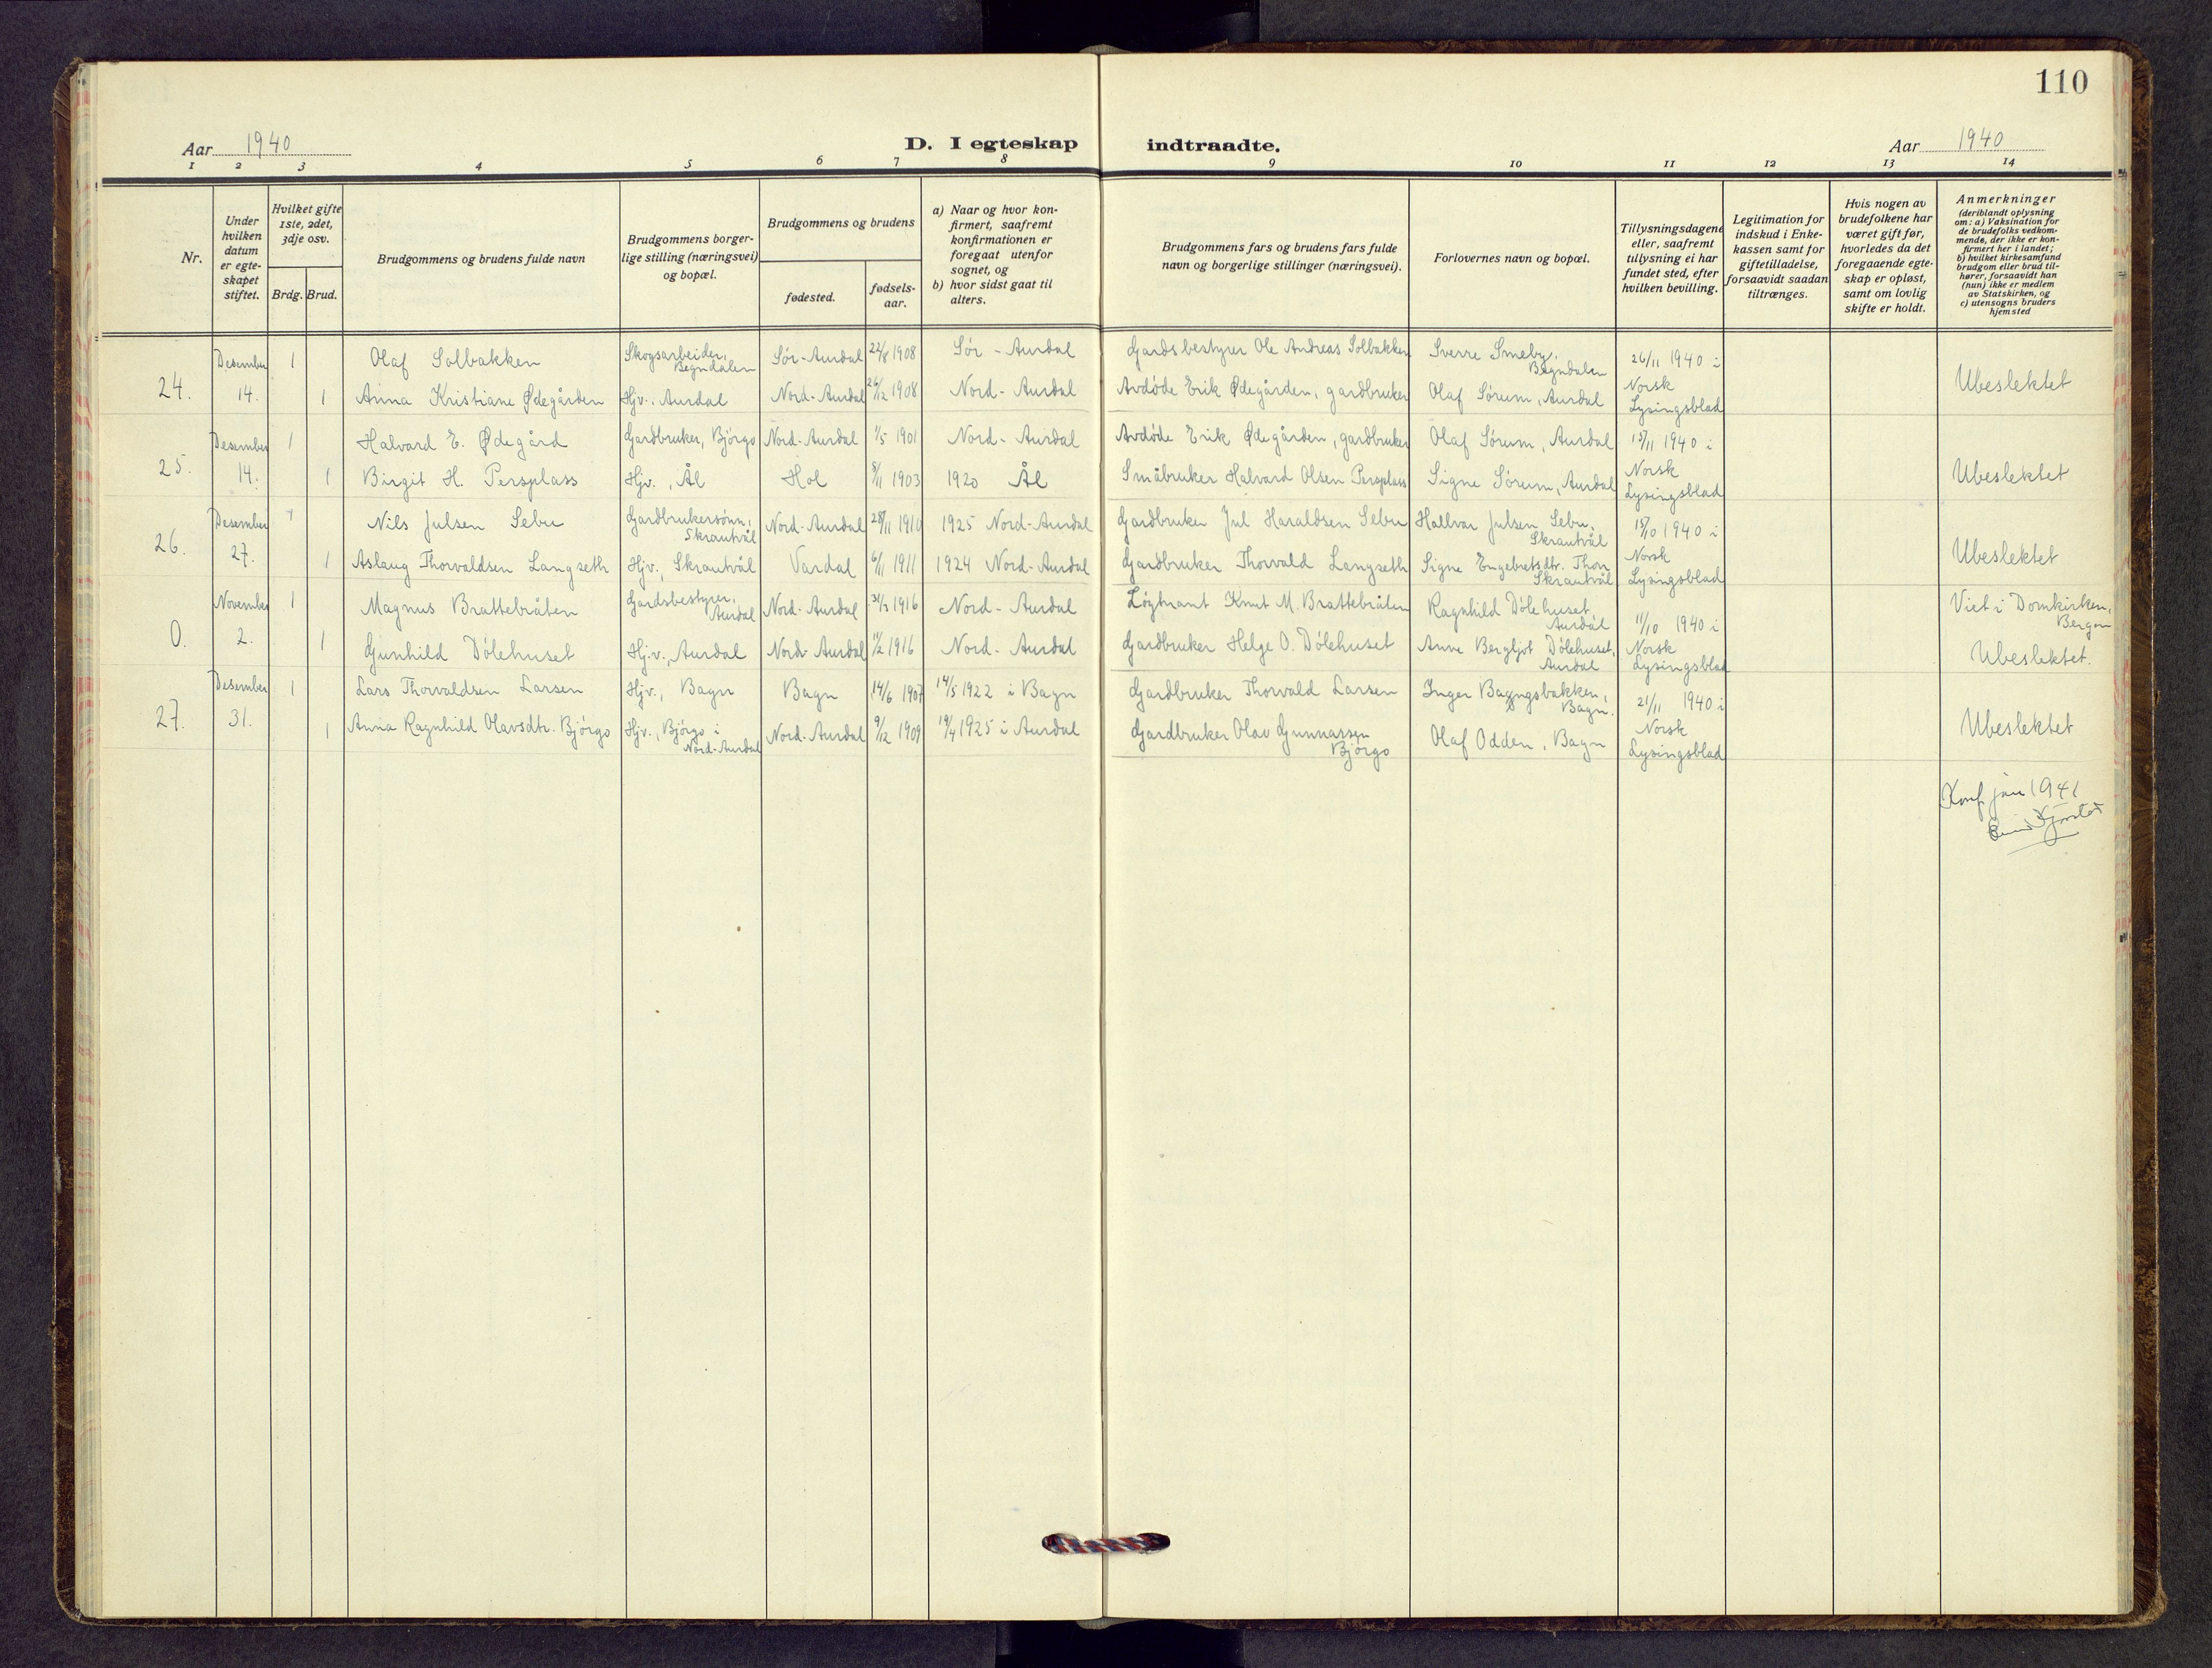 110
Aar 1940
D. I egteskap indtraadte.
Aar 1940
1 2 3 4 5 6 7 8 9 10 11 12 13 14
Nr.
Under
hvilken
datum
er egte-
skapet
stiftet.
Hvilket gifte
1ste, 2det,
3dje osv.
Brdg. Brud.
Brudgommens og brudens fulde navn
Brudgommens borger-
lige stilling (næringsvei)
og bopæl.
Brudgommens og brudens
fødested.
fødsels-
aar.
a) Naar og hvor kon-
firmert, saafremt
konfirmationen er
foregaat utenfor
sognet, og
b) hvor sidst gaat til
alters.
Brudgommens fars og brudens fars fulde
navn og borgerlige stillinger (næringsvei).
Forlovernes navn og bopæl.
Tillysningsdagene
eller, saafremt
tillysning ei har
fundet sted, efter
hvilken bevilling.
Legitimation for
indskud i Enke-
kassen samt for
giftetilladelse,
forsaavidt saadan
tiltrænges.
Hvis nogen av
brudefolkene har
været gift før,
hvorledes da det
foregaaende egte-
skap er opløst,
samt om lovlig
skifte er holdt.
Anmerkninger
(deriblandt oplysning
om: a) Vaksination for
de brudefolks vedkom-
mende, der ikke er kon-
firmert her i landet;
b) hvilket kirkesamfund
brudgom eller brud til-
hører, forsaavidt han
(hun) ikke er medlem
av Statskirken, og
c) utensogns bruders
hjemsted
24.
Desember
14.
1 Olaf Solbakken
Skogsarbeider,
Begndalen
Sør-Aurdal 22/8 1908 Sør - Aurdal
Gardsbestyrer Ole Andreas Solbakken
Sverre Smeby,
Begndalen
26/11 1940 i
Norsk
Lysingsblad
1 Anna Kristiane Ødegården
Hjv., Aurdal Nord-Aurdal 26/12 1908 Nord- Aurdal
Avdøde Erik Ødegården, gardbruker
Olaf Sørum, Aurdal
Ubeslektet
25.
Desember
14.
1 Halvard E. Ødegård
Gardbruker, Bjørgo Nord-Aurdal 1/5 1901 Nord- Aurdal
Avdøde Erik Ødegården, gardbruker
Olaf Sørum, Aurdal
15/11 1940 i
Norsk
Lysingsblad
1 Birgit H. Persplass
Hjv., Ål Hol 8/11 1903 1920 Ål
Småbruker Halvard Olsen Persplass
Signe Sørum, Aurdal
Ubeslektet
26.
Desember
27.
1 Nils Julsen Sebu
Gardbrukersønn,
Skrautvål
Nord-Aurdal 28/11 1910 1925 Nord-Aurdal
Gardbruker Jul Haraldsen Sebu
Hallvar Julsen Sebu,
Skrautvål
15/10 1940 i
Norsk
Lysingsblad
1 Aslaug Thorvaldsen Langseth
Hjv., Skrautvål Vardal 6/11 1911 1924 Nord-Aurdal
Gardbruker Thorvald Langseth
Signe Engebretsdtr. Thon
Skrautvål
Ubeslektet
0.
November
2.
1 Magnus Brattebråten
Gardsbestyrer,
Aurdal
Nord-Aurdal 31/3 1916 Nord- Aurdal
Løgtnant Knut M. Brattebråten
Ragnhild Dølehuset,
Aurdal
11/10 1940 i
Norsk
Lysingsblad
Viet i Domkirken,
Bergen
1 Gunhild Dølehuset
Hj.v., Aurdal Nord-Aurdal 11/2 1916 Nord- Aurdal
Gardbruker Helge O. Dølehuset
Anne Bergljot Dølehuset,
Aurdal
Ubeslektet.
27.
Desember
31.
1 Lars Thorvaldsen Larsen
Hjv., Bagn Bagn 14/6 1907 14/5 1922 i Bagn
Gardbruker Thorvald Larsen
Inger Bagngsbakken,
Bagn.
21/11 1940 i
Norsk
Lysingsblad
1 Anna Ragnhild Olavsdtr. Bjørgo
Hjv., Bjørgo i
Nord-Aurdal
Nord-Aurdal 9/12 1909 19/4 1925 i Aurdal
Gardbruker Olav Gunnarsen
Bjørgo
Olaf Odden, Bagn
Ubeslektet
Konf. jan 1941
Kjørstad